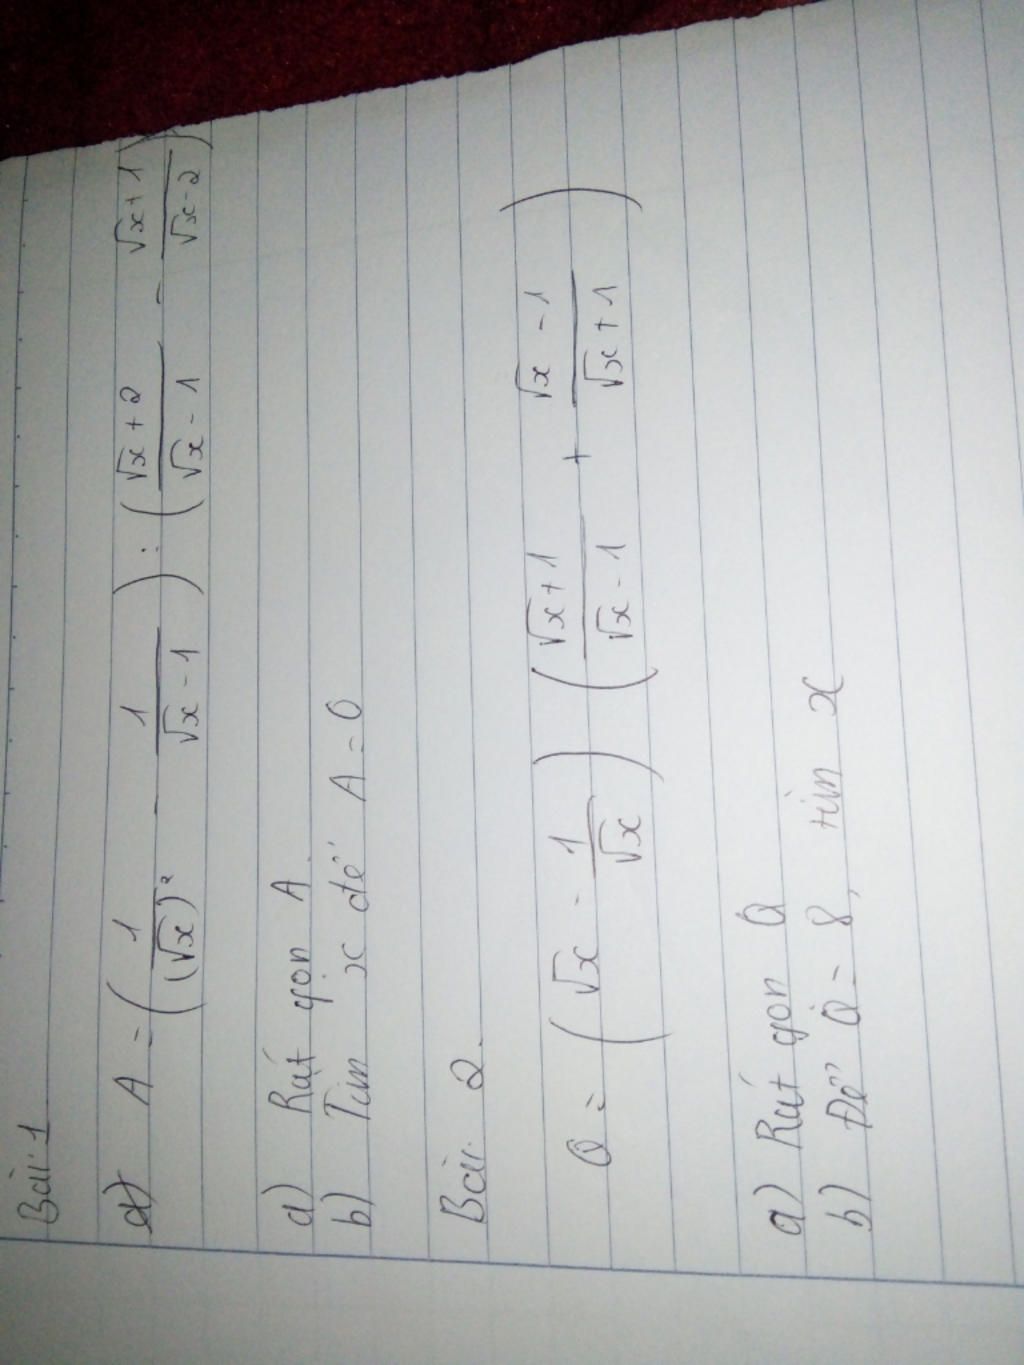 Bài 1
A = (1/(√x)² - 1/(√x - 1)) : ((√x + 2)/(√x - 1) - (√x + 1)/(√x - 2))
a) Rút gọn A
b) Tìm x để A = 0
Bài 2.
Q = (√x - 1/√x) ((√x + 1)/(√x - 1) + (√x - 1)/(√x + 1))
a) Rút gọn Q
b) Để Q = 8, tìm x